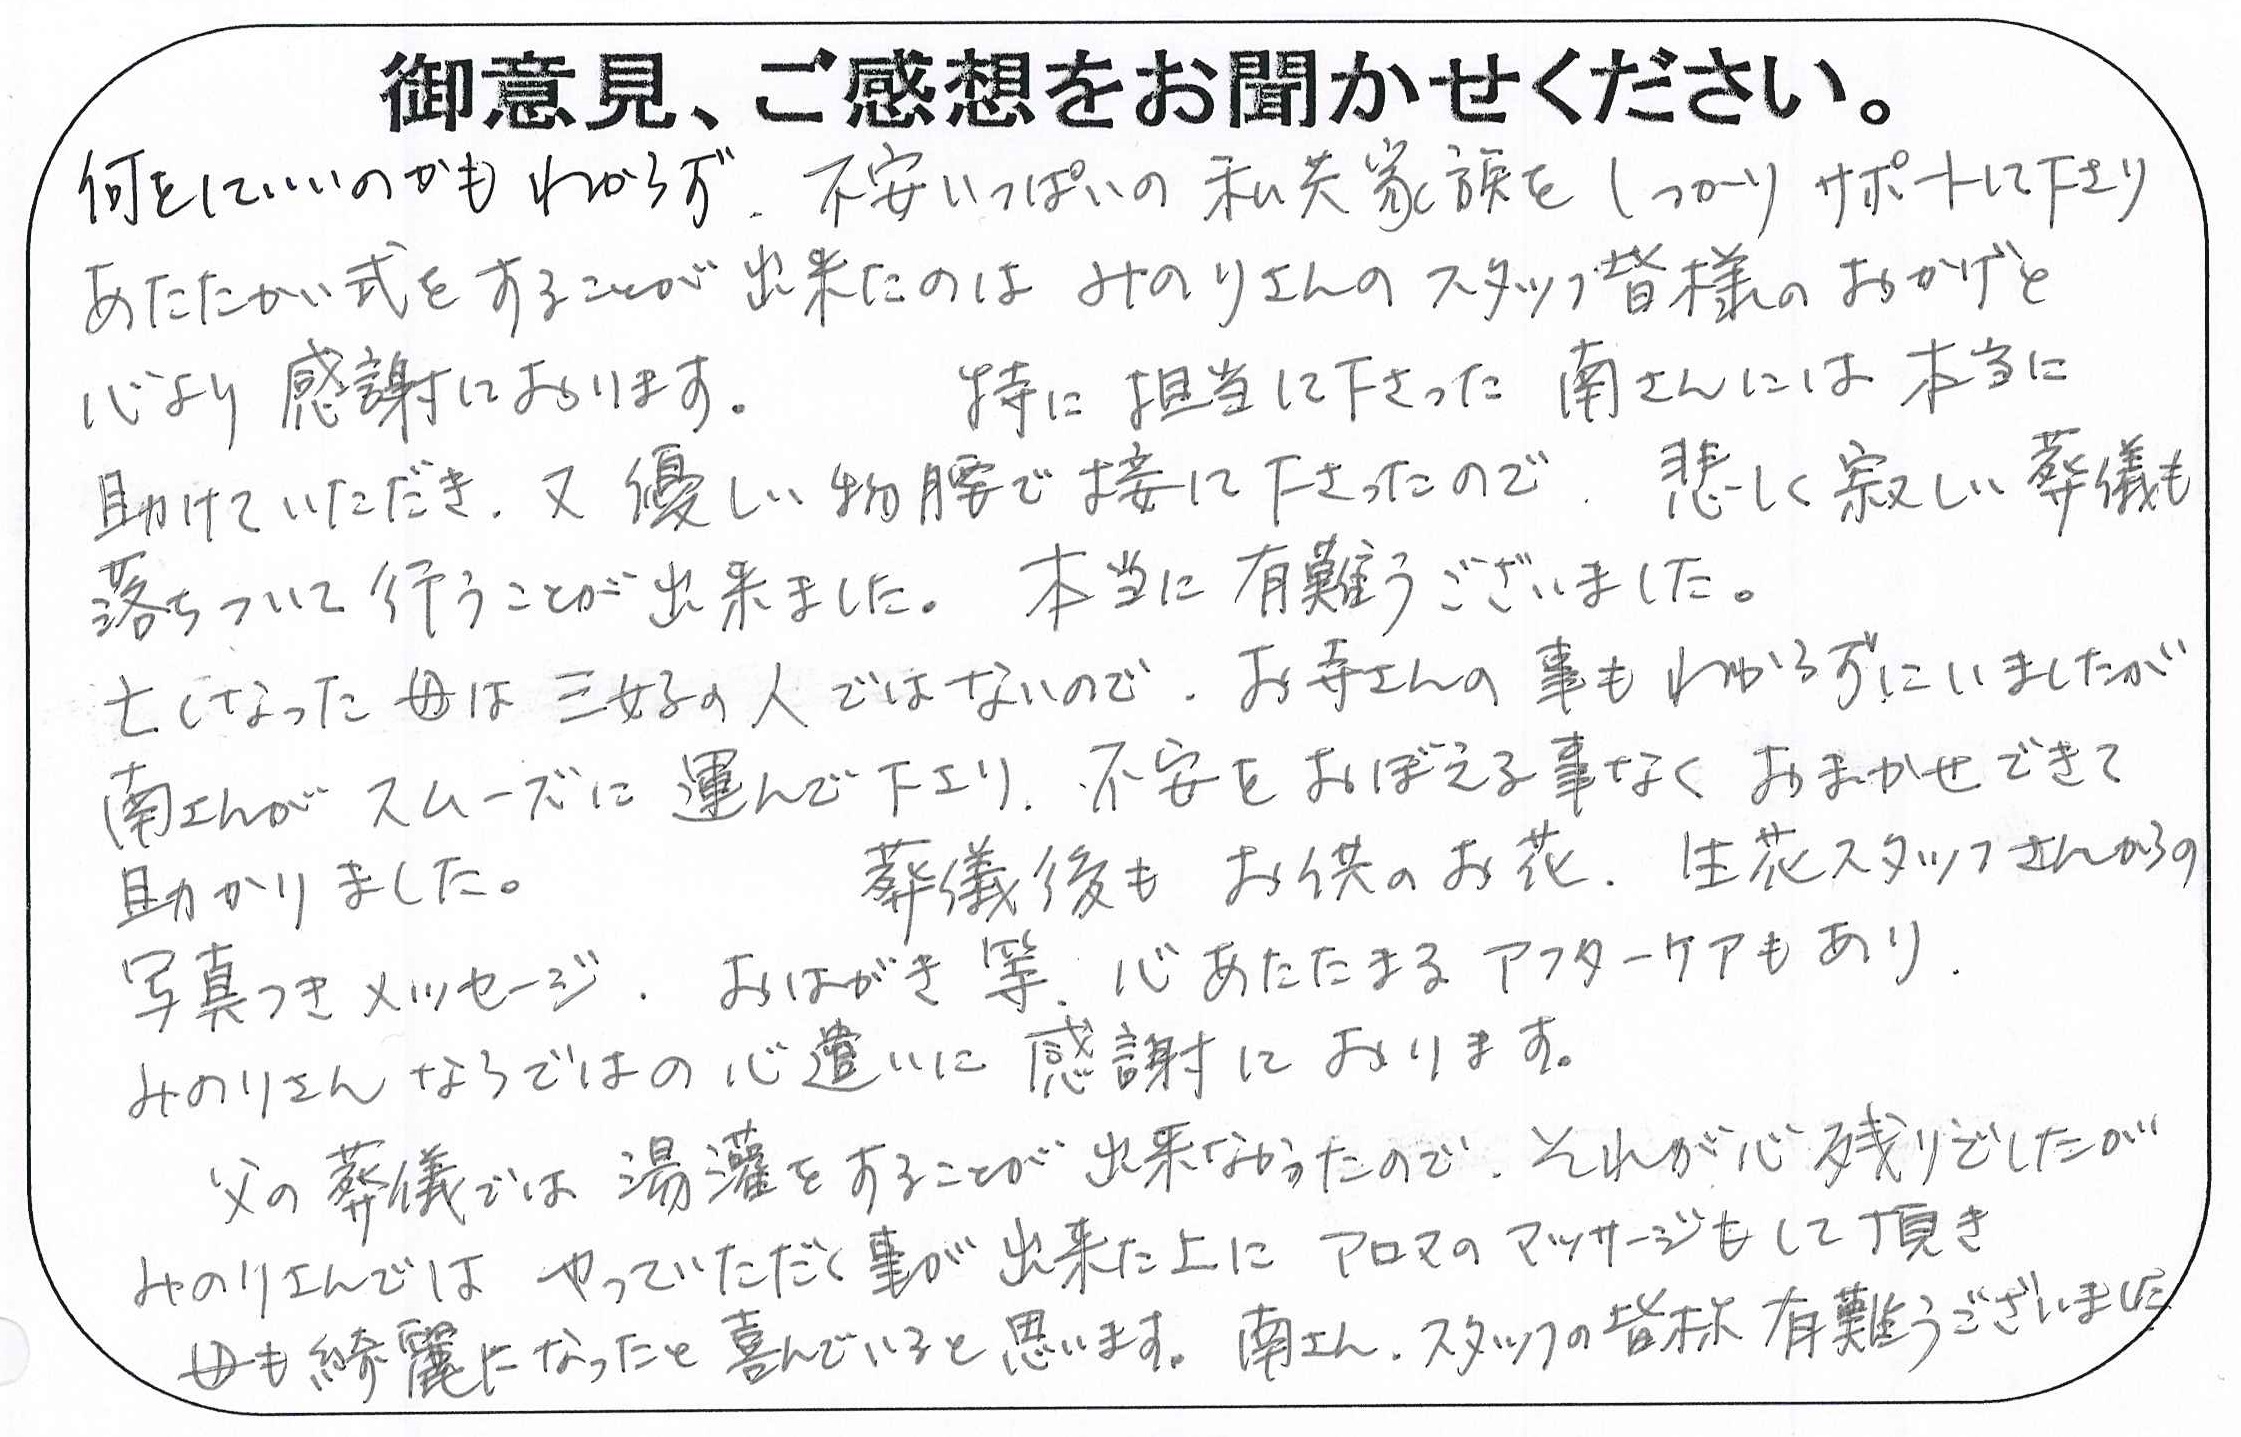 御意見、ご感想をお聞かせください。
何をしていいのかもわからず、不安いっぱいの私共家族をしっかりサポートして下さり
あたたかい式をすることが出来たのはみのりさんのスタッフ皆様のおかげと
心より感謝しております。 特に担当して下さった南さんには本当に
助けていただき、又優しい物腰で接して下さったので、悲しく寂しい葬儀も
落ちついて行うことが出来ました。 本当に有難うございました。
亡くなった母は三好の人ではないので、お寺さんの事もわからずにいましたが
南さんがスムーズに運んで下さり、不安をおぼえる事なくおまかせできて
助かりました。 葬儀後もお供のお花、生花スタッフさんからの
写真つきメッセージ、おはがき等、心あたたまるアフターケアもあり、
みのりさんならではの心遣いに感謝しております。
父の葬儀では湯灌をすることが出来なかったので、それが心残りでしたが
みのりさんではやっていただく事が出来た上にアロマのマッサージもして頂き
母も綺麗になったと喜んでいると思います。南さん、スタッフの皆様有難うございました